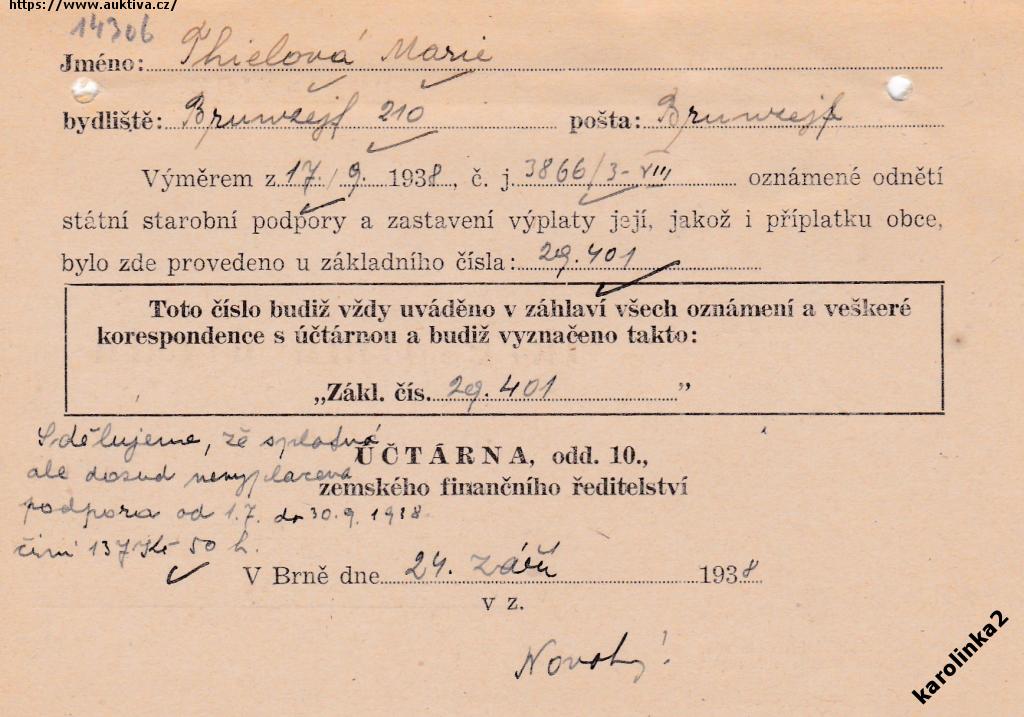 https://www.auktiva.cz/
14306
Jméno: Thielová Marie
bydliště: Brunzejf 210 pošta: Brunzejf
Výměrem z 17./9. 1938, č. j. 3866/3-VIII oznámené odnětí
státní starobní podpory a zastavení výplaty její, jakož i příplatku obce,
bylo zde provedeno u základního čísla: 29.401
Toto číslo budiž vždy uváděno v záhlaví všech oznámení a veškeré
korespondence s účtárnou a budiž vyznačeno takto:
„Zákl. čís. 29.401 ”
Sdělujeme, že splatná
ale dosud nevyplacená
podpora od 1.7. do 30.9. 1938
činí 137 Kč 50 h.
ÚČTÁRNA, odd. 10.,
zemského finančního ředitelství
V Brně dne 24. září 1938
v z.
Novotný
karolinka2